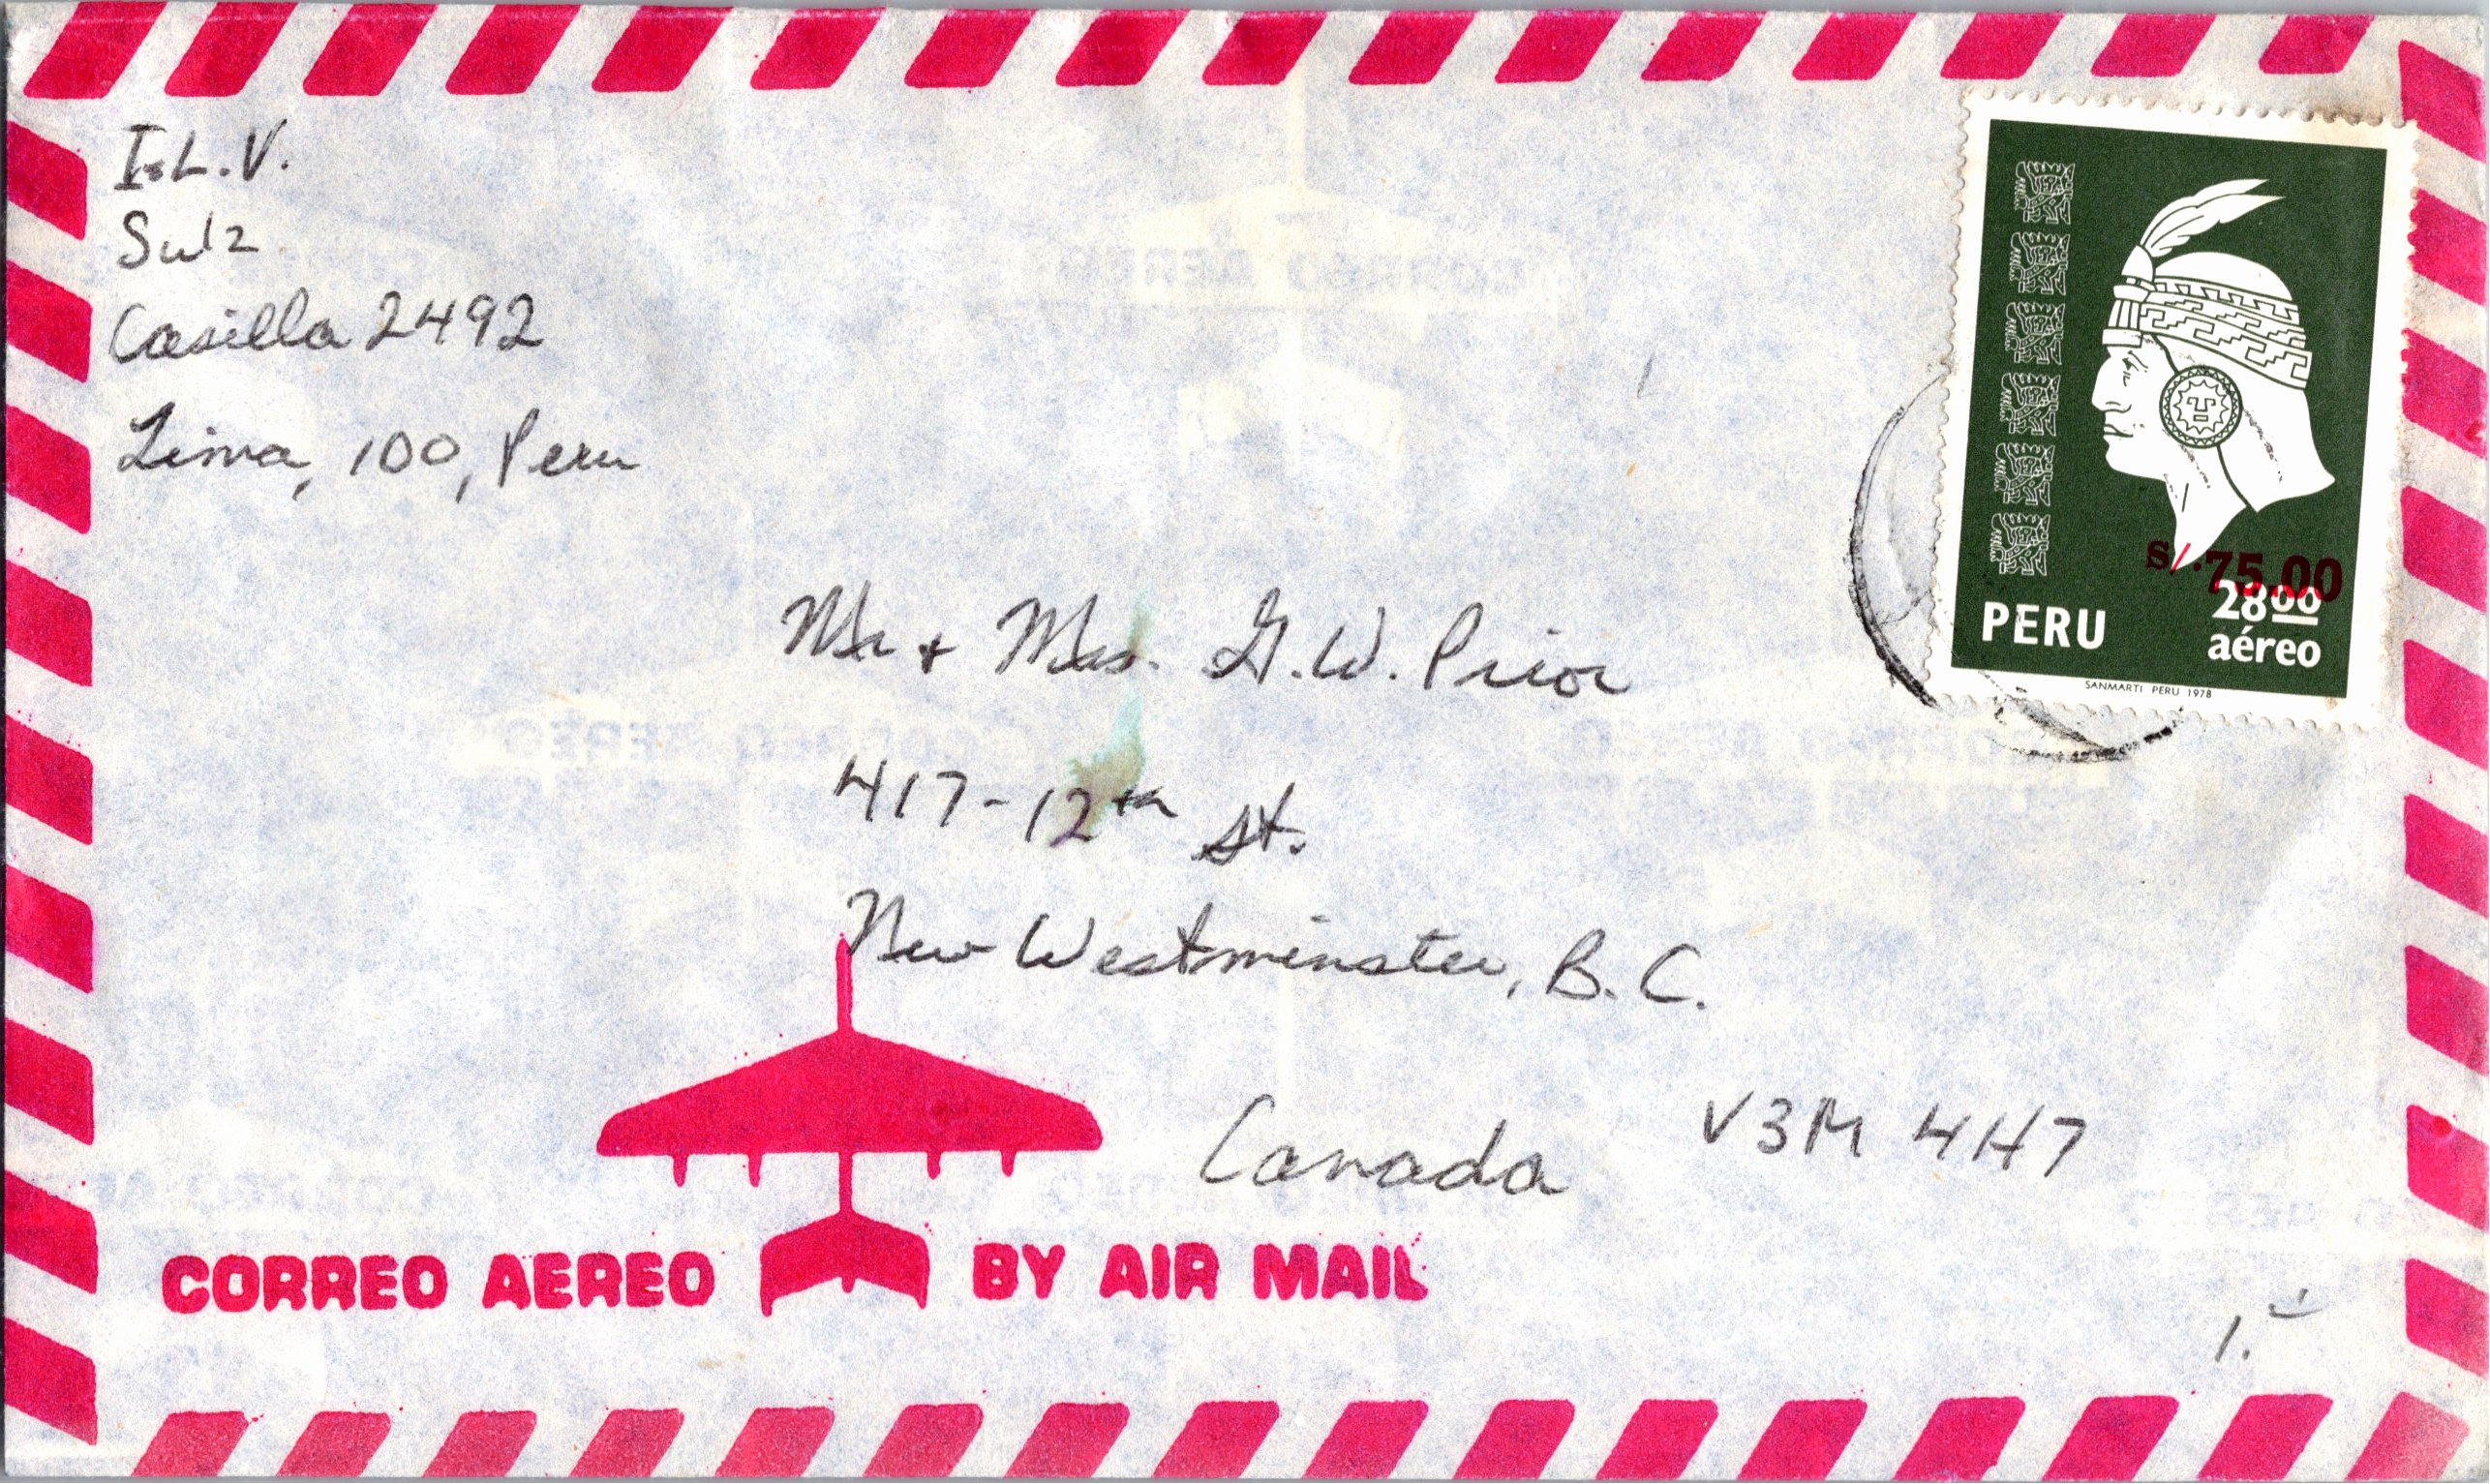 I.L.V.
Sulz
Casilla 2492
Lima, 100, Peru
S/.75.00
28.00
PERU aéreo
SANMARTI PERU 1978
Mr + Mrs. G.W. Prior
417-12th St.
New Westminster, B.C.
Canada V3M 4H7
CORREO AEREO BY AIR MAIL
1.-
CORREO AEREO
CORREO AEREO